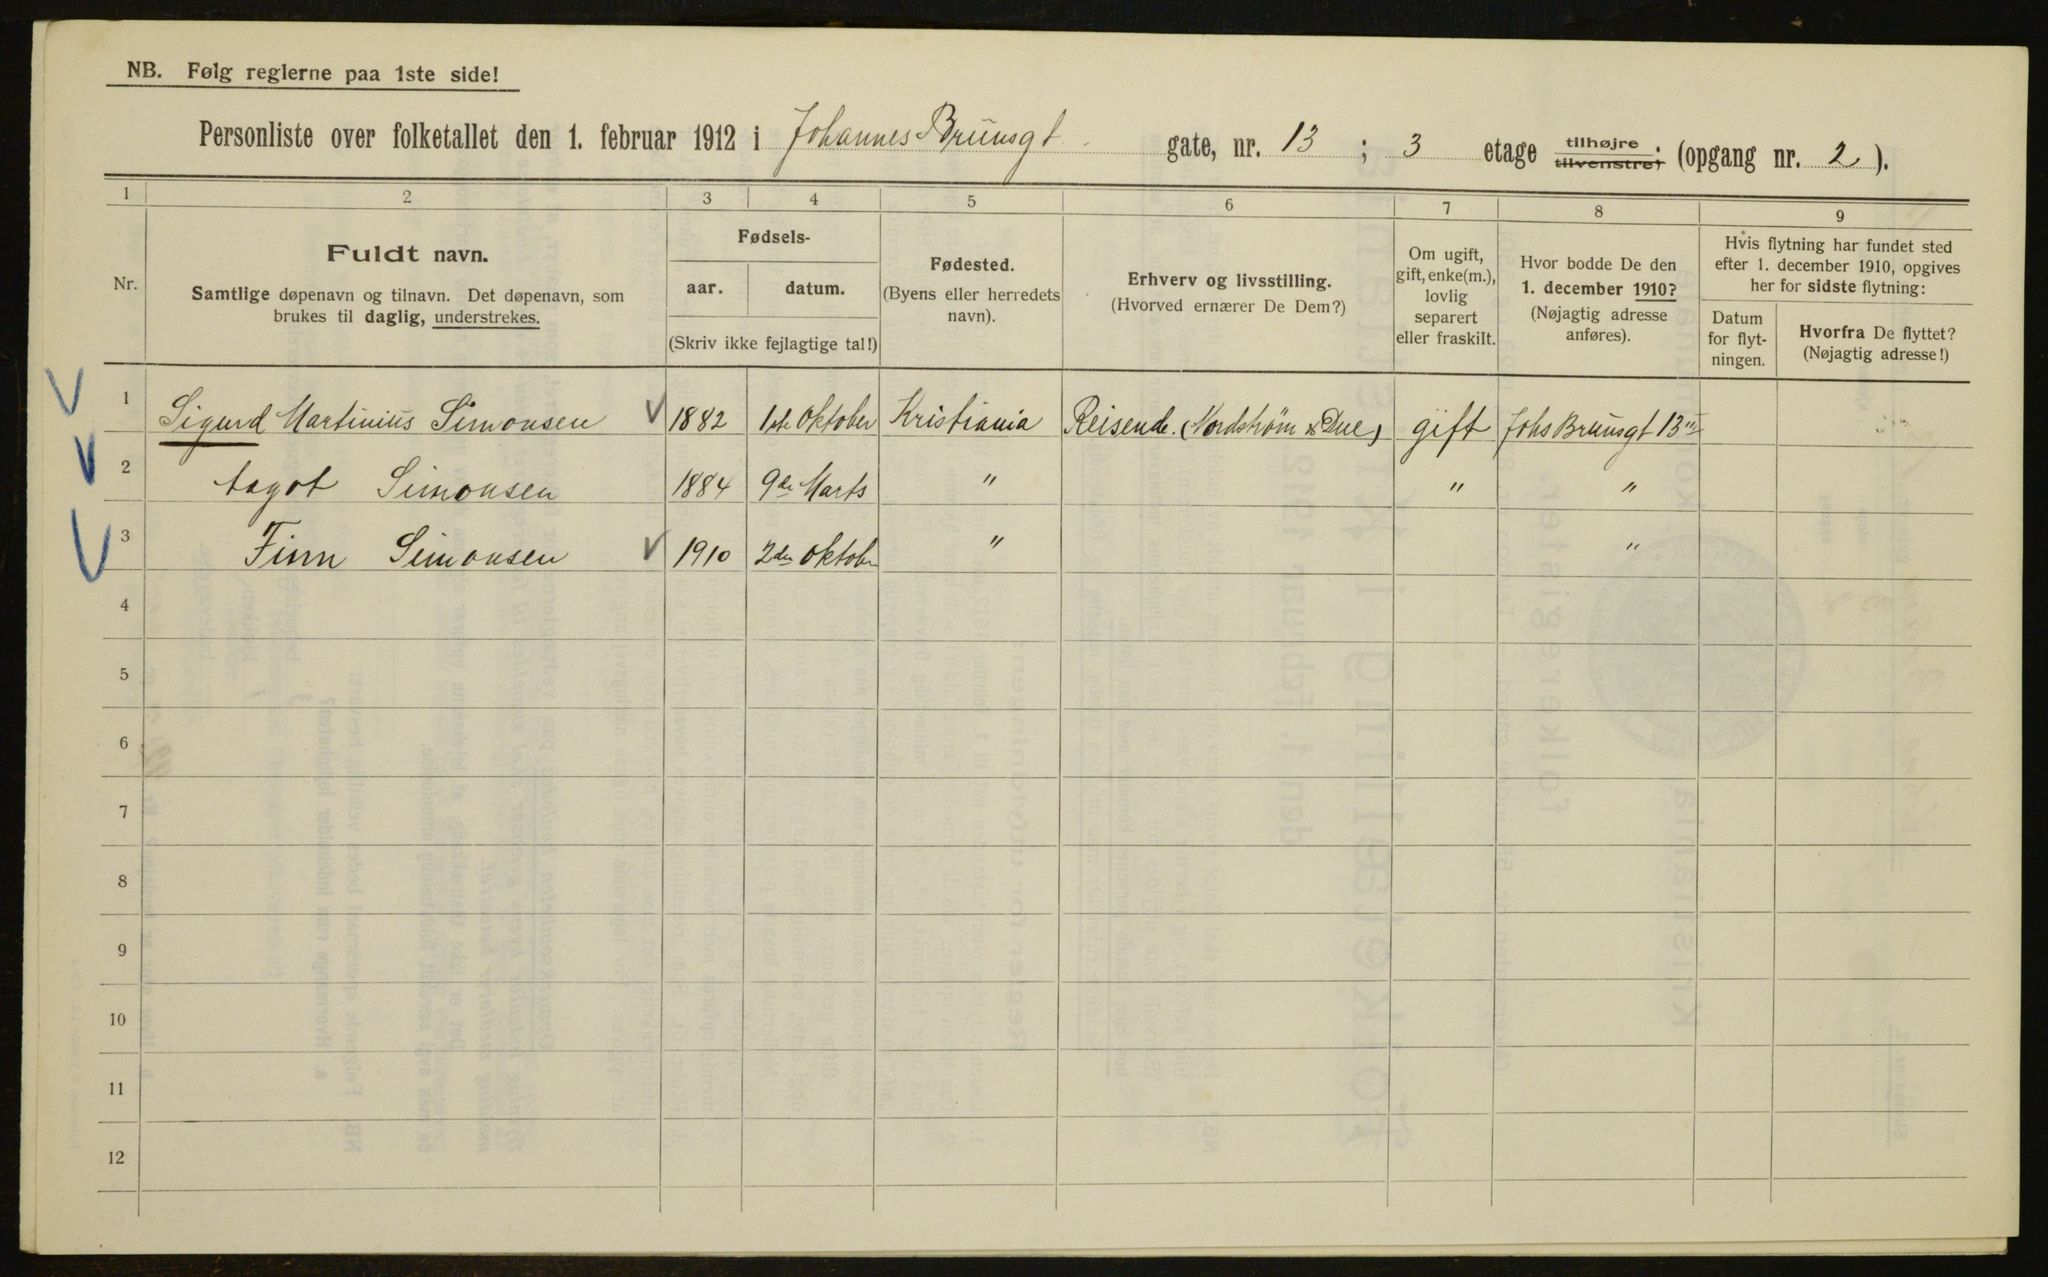 NB. Følg reglerne paa 1ste side!
Personliste over folketallet den 1. februar 1912 i Johannes Brunsgt gate, nr. 13 ; 3 etage tilhøjre tilvenstre; (opgang nr. 2).
1 2 3 4 5 6 7 8 9
Nr.
Fuldt navn.
Samtlige døpenavn og tilnavn. Det døpenavn, som
brukes til daglig, understrekes.
Fødsels-
aar. datum.
(Skriv ikke fejlagtige tal!)
Fødested.
(Byens eller herredets
navn).
Erhverv og livsstilling.
(Hvorved ernærer De Dem?)
Om ugift,
gift, enke(m.),
lovlig
separert
eller fraskilt.
Hvor bodde De den
1. december 1910?
(Nøjagtig adresse
anføres).
Hvis flytning har fundet sted
efter 1. december 1910, opgives
her for sidste flytning:
Datum
for flyt-
ningen.
Hvorfra De flyttet?
(Nøjagtig adresse!)
1 Sigurd Martinius Simonsen 1882 1ste Oktober Kristiania Reisende. (Nordstrøm & Due) gift Johs Brunsgt 13 III
2 Aagot Simonsen 1884 9de Marts " " "
3 Finn Simonsen 1910 2den Oktober " "
4
5
6
7
8
9
10
11
12